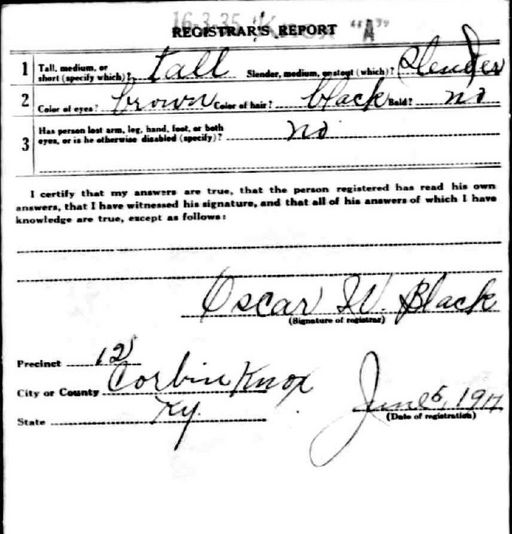 16-3-35 Knox "A"
REGISTRAR'S REPORT
1 Tall, medium, or short (specify which)? tall Slender, medium, or stout (which)? Slender
2 Color of eyes? brown Color of hair? black Bald? no
3 Has person lost arm, leg, hand, foot, or both eyes, or is he otherwise disabled (specify)? no
I certify that my answers are true, that the person registered has read his own
answers, that I have witnessed his signature, and that all of his answers of which I have
knowledge are true, except as follows:
Oscar W. Black
(Signature of registrar)
Precinct 12
City or County Corbin Knox
State Ky. June 5, 1917
(Date of registration)